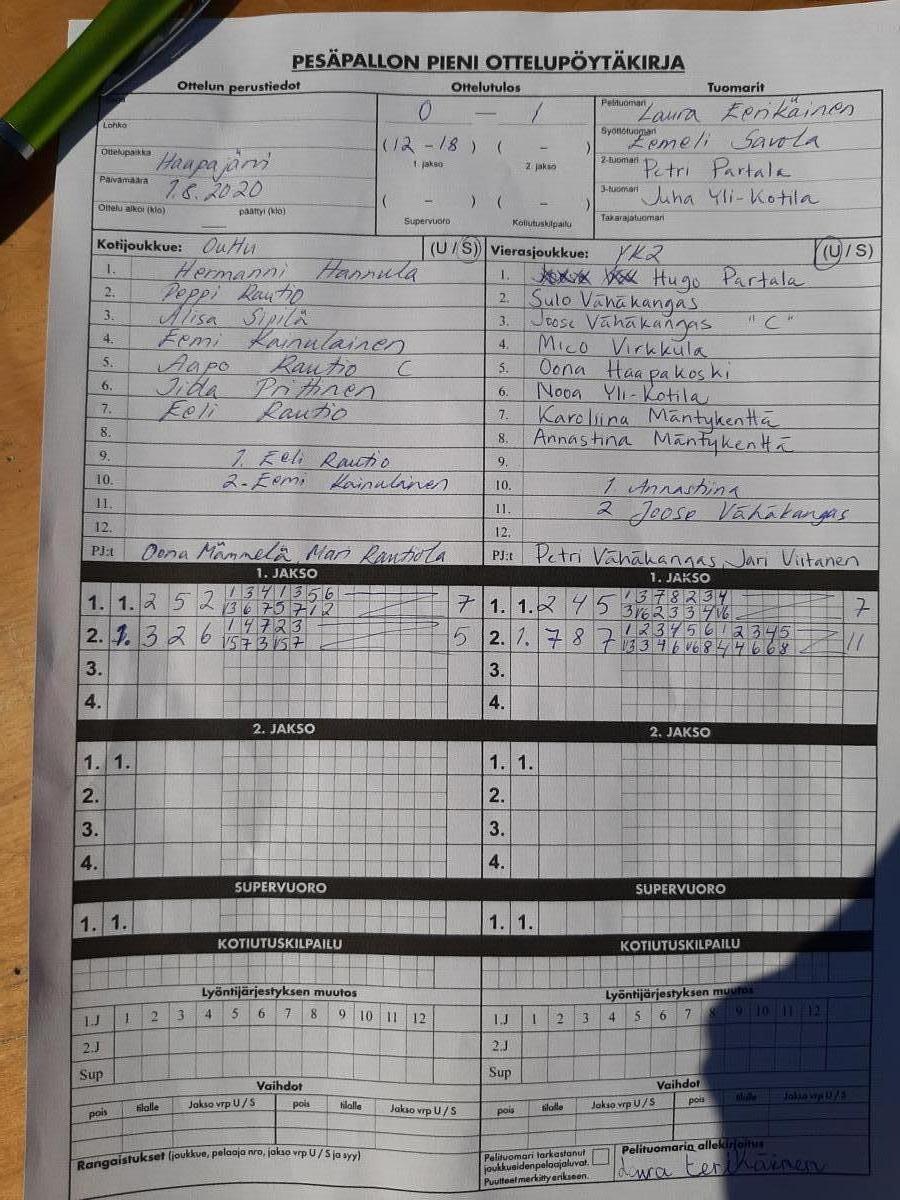 PESÄPALLON PIENI OTTELUPÖYTÄKIRJA
Ottelun perustiedot
Lohko
Ottelupaikka Haapajärvi
Päivämäärä 1.8.2020
Ottelu alkoi (klo) päättyi (klo)
Ottelutulos
0 — 1
(12 - 18) ( - )
1. jakso 2. jakso
( - ) ( - )
Supervuoro Kotiutuskilpailu
Tuomarit
Pelituomari Laura Eerikäinen
Syöttötuomari Eemeli Savola
2-tuomari Petri Partala
3-tuomari Juha Yli-Kotila
Takarajatuomari
Kotijoukkue: OuHu (U / S)
1. Hermanni Hannula
2. Peppi Rautio
3. Alisa Sipilä
4. Eemi Kainulainen
5. Aapo Rautio C
6. Iida Prittinen
7. Eeli Rautio
8.
9. 1. Eeli Rautio
10. 2. Eemi Kainulainen
11.
12.
PJ:t Oona Mämmelä Mari Rautiola
Vierasjoukkue: YK2 (U / S)
1. Hugo Partala
2. Sulo Vähäkangas
3. Joose Vähäkangas "C"
4. Mico Virkkula
5. Oona Haapakoski
6. Nooa Yli-Kotila
7. Karoliina Mäntykenttä
8. Annastina Mäntykenttä
9.
10. 1 Annastiina
11. 2 Joose Vähäkangas
12.
PJ:t Petri Vähäkangas, Jari Viitanen
1. JAKSO
1. 1. 2 5 2 1 3 4 1 3 5 6 7
2. 1. 3 2 6 1 4 7 2 3 5
3.
4.
1. JAKSO
1. 1. 2 4 5 1 3 7 8 2 3 4 7
2. 1. 7 8 7 1 2 3 4 5 6 1 2 3 4 5 11
3.
4.
2. JAKSO
1. 1.
2.
3.
4.
2. JAKSO
1. 1.
2.
3.
4.
SUPERVUORO
1. 1.
SUPERVUORO
1. 1.
KOTIUTUSKILPAILU
KOTIUTUSKILPAILU
Lyöntijärjestyksen muutos
1.J 1 2 3 4 5 6 7 8 9 10 11 12
2.J
Sup
Lyöntijärjestyksen muutos
1.J 1 2 3 4 5 6 7 8 9 10 11 12
2.J
Sup
Vaihdot
pois tilalle Jakso vrp U / S pois tilalle Jakso vrp U / S
Vaihdot
pois tilalle Jakso vrp U / S pois tilalle Jakso vrp U / S
Rangaistukset (joukkue, pelaaja nro, jakso vrp U / S ja syy)
Pelituomari tarkastanut
joukkueidenpelaajaluvat.
Puutteet merkitty erikseen.
Pelituomarin allekirjoitus
Laura Eerikäinen